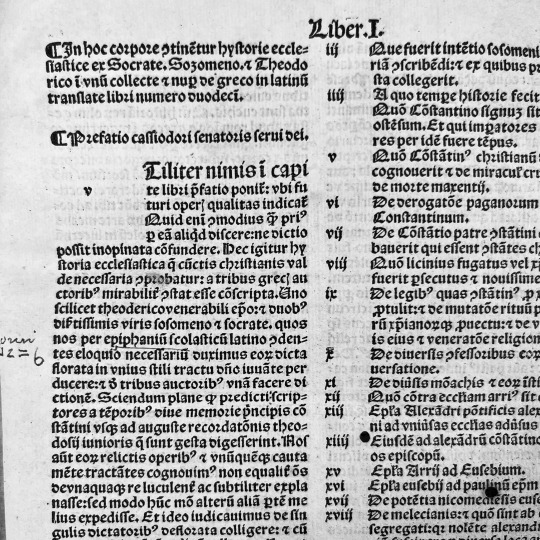 Liber.I.
¶In hoc corpore ꝯtinẽtur hystorie eccle-
siastice ex Socrate. Sozomeno. ⁊ Theodo
rico ĩ vnũ collecte ⁊ nuꝑ de greco in latinũ
translate libri numero duodecĩ.
¶Prefatio cassiodori senatoris serui dei.
Utiliter nimis ĩ capi
v
te libri p̃fatio poniť: vbi fu
turi operꝭ qualitas indicať
Nuid enĩ ꝯmodius q̃ priꝰ
ꝑ eã aliqd discerne: ne dictio
possit inopinata cõfundere. Hec igitur hy
storia ecclesiastica q̃ cũctis christianis val
de necessaria ꝓbatur: a tribus grecꝭ au
ctoribꝰ mirabiliť ꝯstat esse cõscripta. Uno
scilicet theodorico venerabili ep̃o: ⁊ duobꝰ
disertissimis viris sosomeno ⁊ socrate. quos
nos per epiphaniũ scolasticũ latino ꝯden-
tes eloquio necessariũ duximus eoꝝ dicta
deflorata in vnius stili tractũ dño iuuãte per
ducere: ⁊ õ tribus auctoribꝰ vnã facere di
ctionẽ. Sciendum plane ꝙ predicti scrip-
tores a tẽporibꝰ diue memorie p̃ncipis cõ
stãtini vsqꝫ ad auguste recordatõnis theo-
dosij iunioris q̃ sunt gesta digesserint. Nos
aũt eoꝝ relictis operibꝰ ⁊ vnũquẽqꝫ cauta
mẽte tractãtes cognouimꝰ non equaliť õs
de vnaquaqꝫ re luculenť ac subtiliter expla
nasse: sed modo hũc mõ alterũ aliã ꝑtẽ me
lius expedisse. Et ideo iudicauimus de sin
gulis dictatoribꝰ deflorata colligere: ⁊ cũ
iij Que fuerit intẽtio sosomeni
riã ꝯscribẽdi: ⁊ ex quibus pr
sta collegerit.
iiij A quo tempe historie fecit
Quõ Cõstantino signuʒ sit
ostẽsum. Et qui imꝑatores
res per idẽ fuere tẽpus.
v Quõ Cõstãtinꝰ christianũ
cognouerit ⁊ de miraculꝭ cru
de morte maxentij.
vi De derogatõe paganorum
Constantinum.
vij De Cõstãtio patre ꝯstãtini
bauerit qui essent ꝯstãtes ch
viij Quõ licinius fugatus vel xp̃
fuerit ꝑsecutus ⁊ nouissime
ix De legibꝰ quas ꝯstãtinꝰ ꝓ
ꝓtulit: ⁊ de mutatõe rituũ
rũ xp̃ianoꝝqꝫ ꝓuectu: ⁊ de v
is eius ⁊ veneratõe religion
x De diuersis ꝯfessoribus eoꝝ
uersatione.
xi De diũsis mõachis ⁊ eoꝝ ĩsti
xij Quõ cõtra eccɫiam arriꝰ sit
xiij Ep̃ɫa Alexãdri põtificis alex
ni ad vniũsas eccɫias adũsus
xiiij Eiusdẽ ad alexãdrũ cõstãtino
os episcopũ.
xv Ep̃ɫa Arrij ad Eusebium.
xvi Ep̃ɫa eusebij ad paulinũ ep̃m
xvij De potẽtia nicomediẽsis euse
xviij De melecianis: ⁊ quõ sint ab
segregati: qꝛ nolẽte alexandr